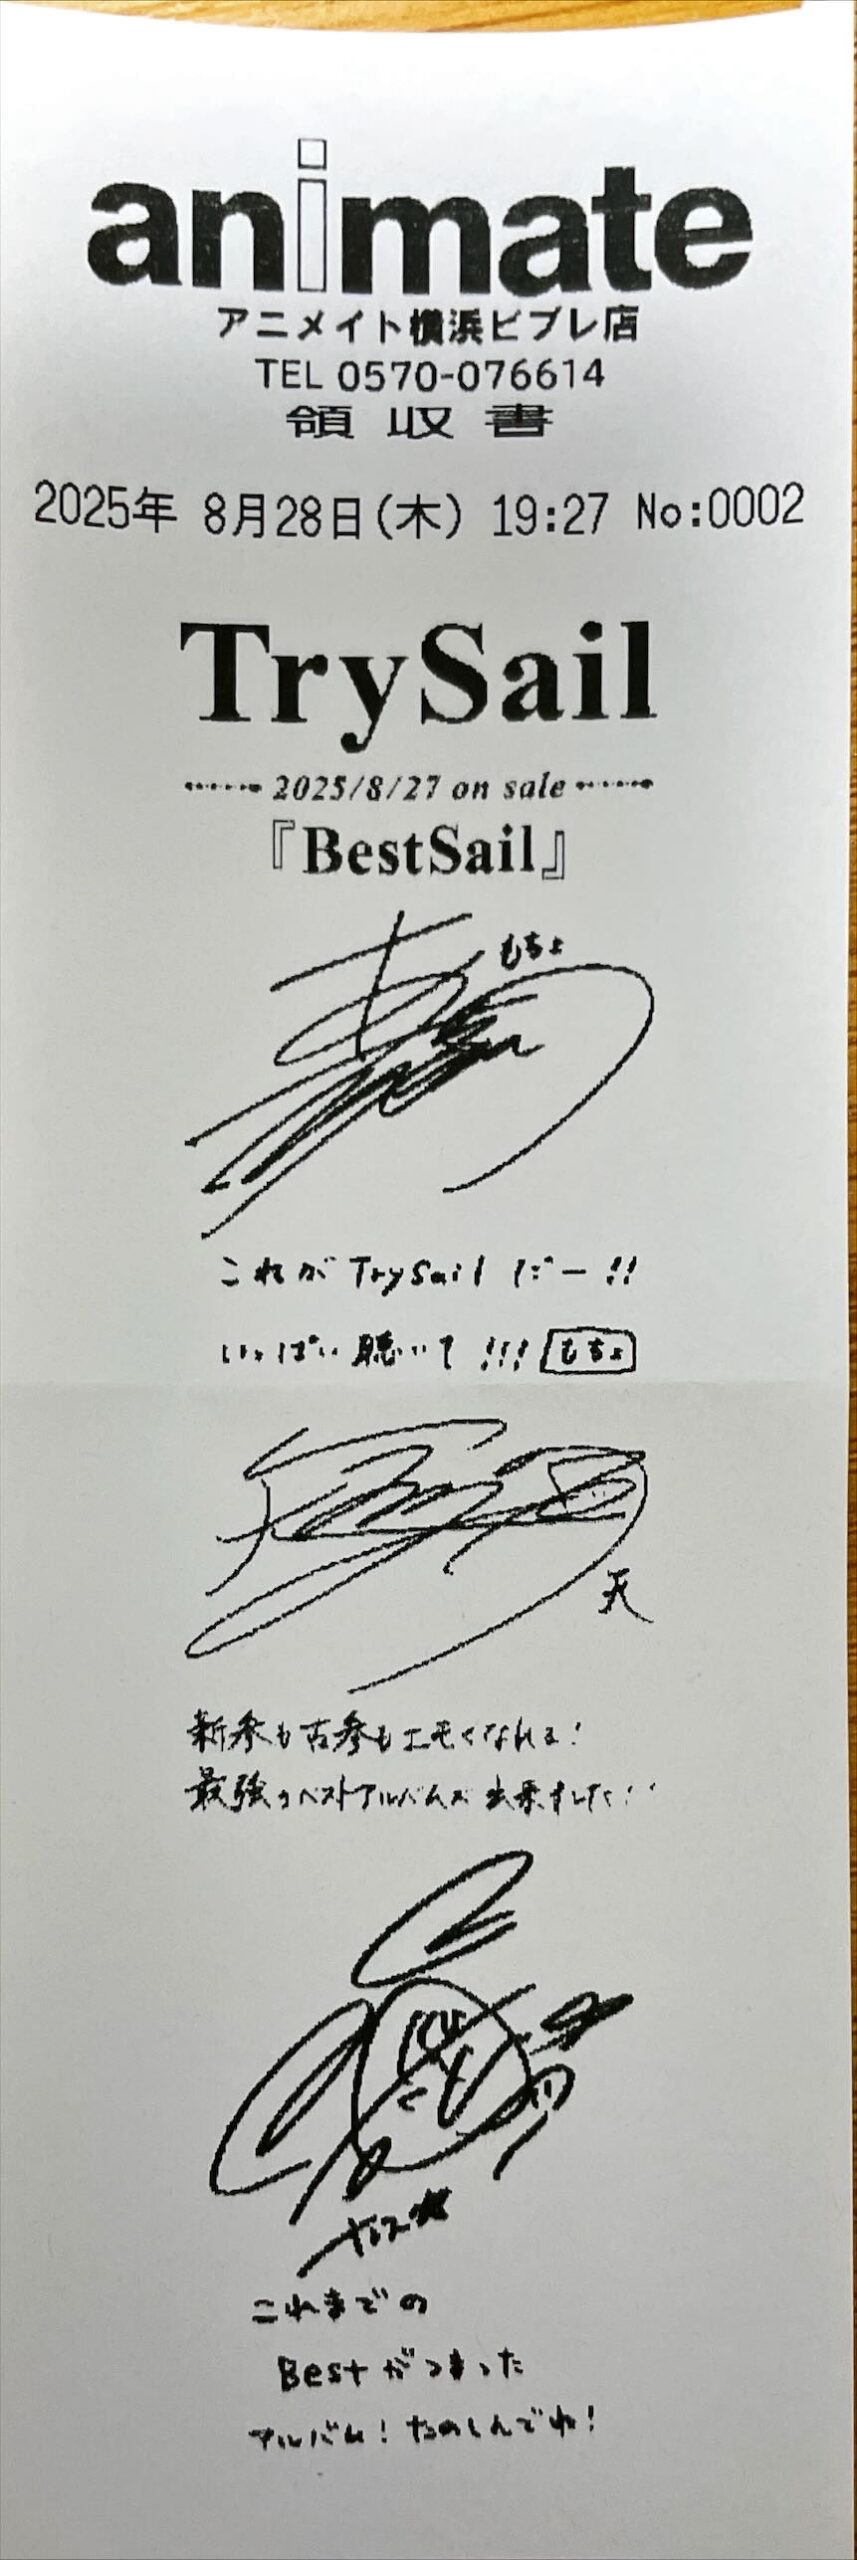 animate
アニメイト横浜ビブレ店
TEL 0570-076614
領収書
2025年 8月28日(木) 19:27 No:0002
TrySail
2025/8/27 on sale
『BestSail』
もちょ
これが TrySail だー!!
いっぱい聴いて!!! もちょ
天
新参も古参もエモくなれる!
最強のベストアルバムが出来ました!!
これまでの
Bestがつまった
アルバム!たのしんでね!